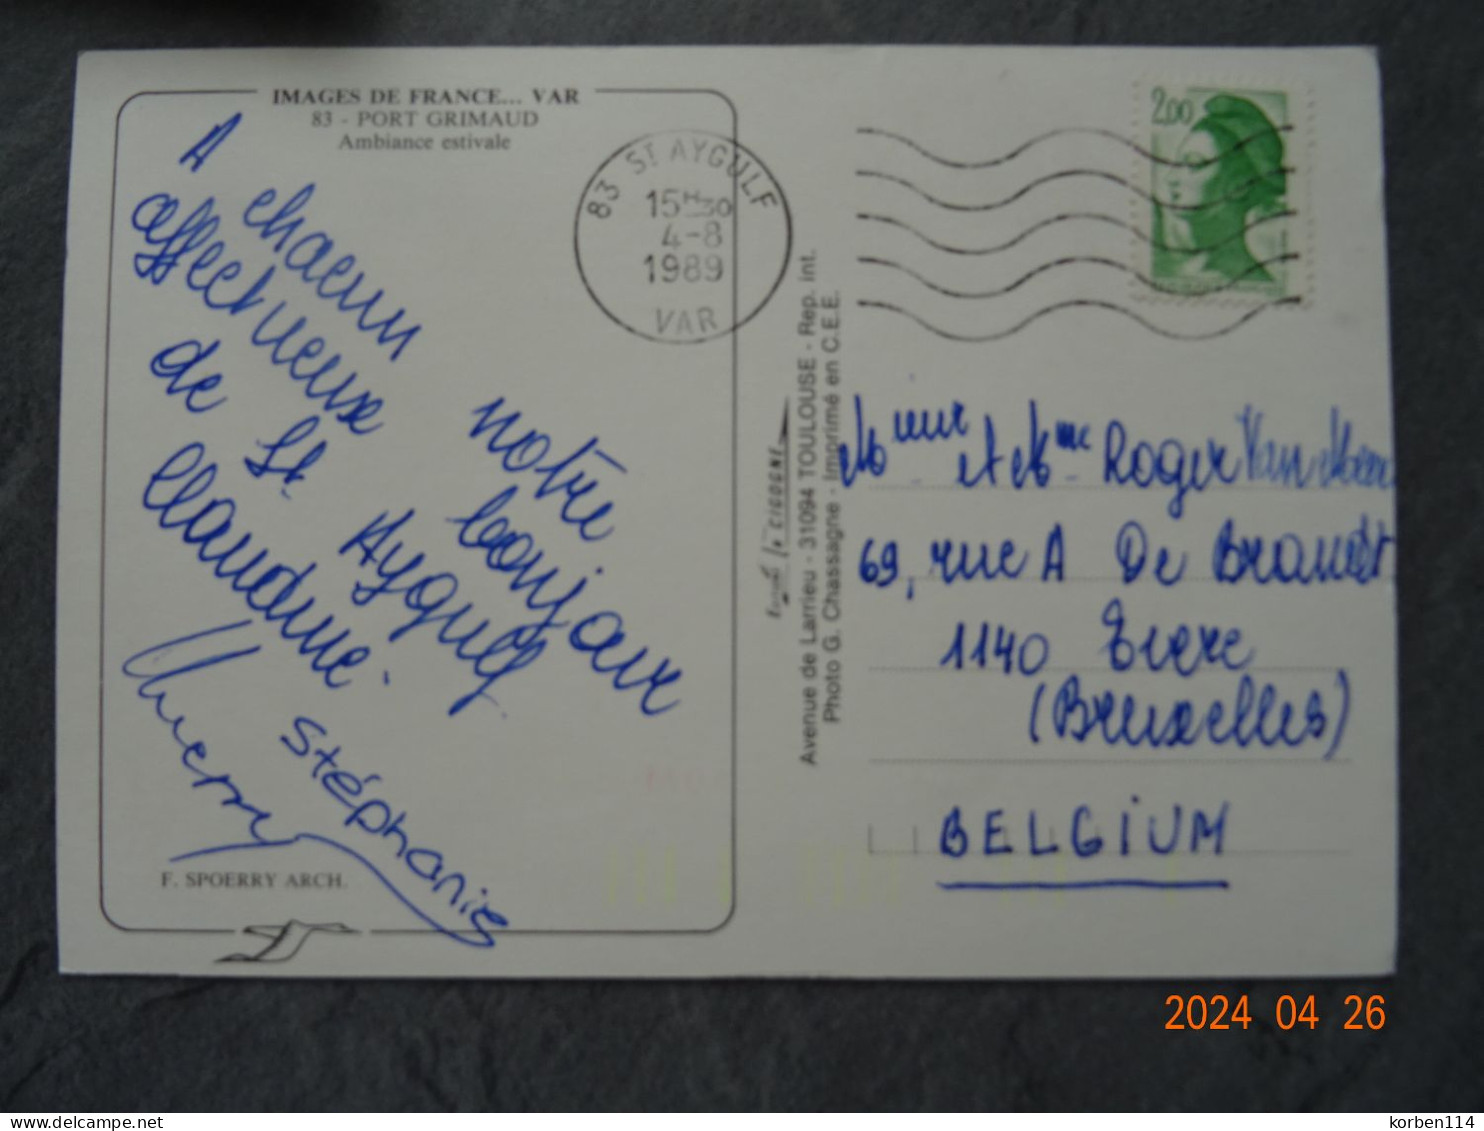 IMAGES DE FRANCE... VAR
83 - PORT GRIMAUD
Ambiance estivale
A chacun notre
affectueux bonjour
de St Aygulf
Claudine.
Thierry
Stéphanie
F. SPOERRY ARCH.
83 ST AYGULF
15H30
4-8
1989
VAR
2,00
la CIGOGNE
Avenue de Larrieu - 31094 TOULOUSE - Rep. int.
Photo G. Chassagne - Imprimé en C.E.E.
et Mme Roger Van
69, rue A De Brandt
1140 Evere
(Bruxelles)
BELGIUM
2024 04 26
korben114